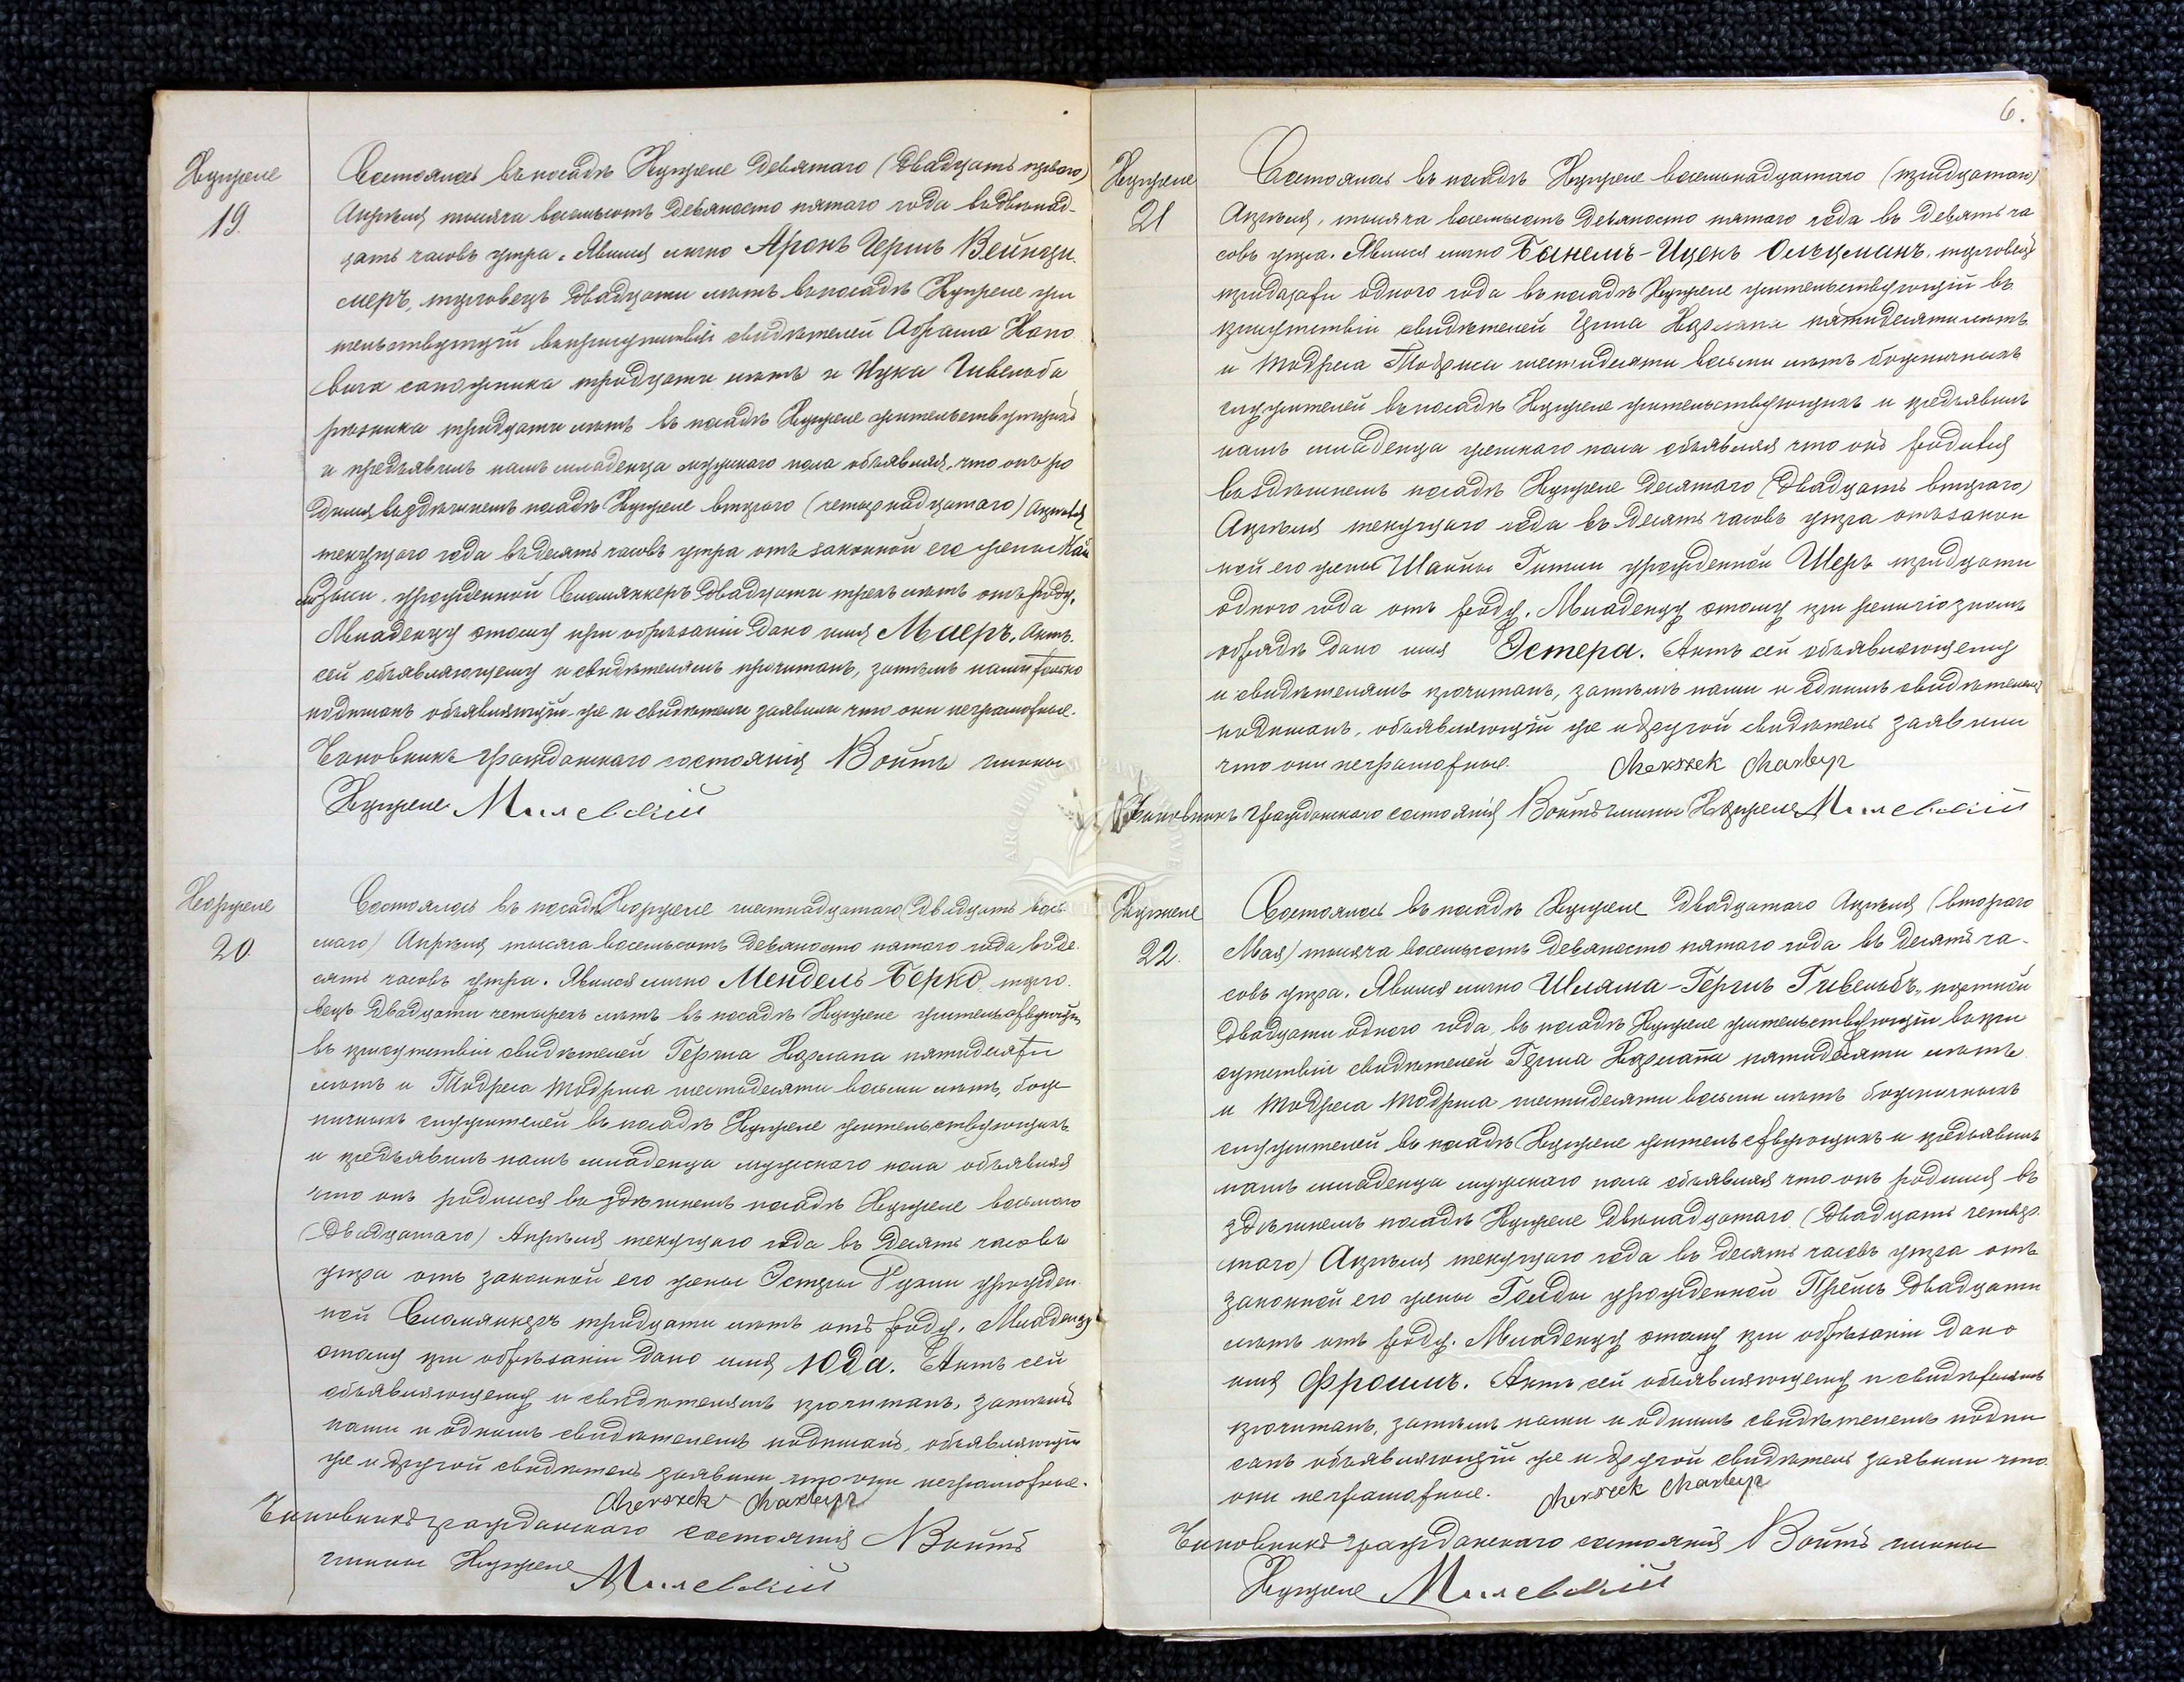 Журжене
19.
Состоялось въ посадѣ Журжене девятаго (двадцать перваго)
Апрѣля тысяча восемьсотъ девяносто пятаго года въ двѣнад-
цать часовъ утра. Явился лично Аронъ Гершъ Вейнци-
меръ, торговецъ двадцати лѣтъ въ посадѣ жи
тельствующій въ присутствіи свидѣтелей Абрама
сапожника тридцати лѣтъ и Ицка
рѣзника тридцати лѣтъ въ посадѣ жительствующихъ
и предъявилъ намъ младенца мужскаго пола объявляя, что онъ ро
дился въ здѣшнемъ посадѣ втораго (четырнадцатаго) Апрѣля
текущаго года въ десять часовъ утра отъ законной его жены
урожденной двадцати трехъ лѣтъ отъ роду.
Младенцу этому при обрѣзаніи дано имя Маеръ. Актъ
сей объявляющему и свидѣтелямъ прочитанъ, затѣмъ нами только
подписанъ объявляющій же и свидѣтели заявили что они неграмотные.
Чиновникъ гражданскаго состоянія Войтъ гмины
Милевскій
20.
Состоялось въ посадѣ шестнадцатаго (двадцать вось
маго) Апрѣля тысяча восемьсотъ девяносто пятаго года въ де
сять часовъ утра. Явился лично Мендель Берко торго
вецъ двадцати четырехъ лѣтъ въ посадѣ жительствующій
въ присутствіи свидѣтелей Герша пятидесяти
лѣтъ и Тодреса Тодриса шестидесяти восьми лѣтъ, бож
ничныхъ служителей въ посадѣ жительствующихъ
и предъявилъ намъ младенца мужескаго пола объявляя
что онъ родился въ здѣшнемъ посадѣ восьмаго
(двадцатаго) Апрѣля текущаго года въ десять часовъ
утра отъ законной его жены Эстеры урожден
ной тридцати лѣтъ отъ роду. Младенцу
этому при обрѣзаніи дано имя Юда. Актъ сей
объявляющему и свидѣтелямъ прочитанъ, затѣмъ
нами и однимъ свидѣтелемъ подписанъ, объявляющій
же и другой свидѣтель заявили что они неграмотные.
Чиновникъ гражданскаго состоянія Войтъ
гмины Милевскій
6.
21
Состоялось въ посадѣ восемнадцатаго (тридцатаго)
Апрѣля, тысяча восемьсотъ девяносто пятаго года въ девять ча
совъ утра. Явился лично Ицекъ Ольцманъ, торговецъ
тридцати одного года въ посадѣ жительствующій въ
присутствіи свидѣтелей пятидесяти лѣтъ
и Тодреса Тодриса шестидесяти восьми лѣтъ божничныхъ
служителей въ посадѣ жительствующихъ и предъявилъ
намъ младенца женскаго пола объявляя что онъ родился
въ здѣшнемъ посадѣ десятаго (двадцать втораго)
Апрѣля текущаго года въ десять часовъ утра отъ закон
ной его жены Шайны Гитли урожденной Шеръ тридцати
одного года отъ роду. Младенцу этому при религіозномъ
обрядѣ дано имя Эстера. Актъ сей объявляющему
и свидѣтелямъ прочитанъ, затѣмъ нами и однимъ свидѣтелемъ
подписанъ, объявляющій же и другой свидѣтель заявили
что они неграмотные.
Чиновникъ гражданскаго состоянія Войтъ гмины Милевскій
22.
Состоялось въ посадѣ двадцатаго Апрѣля (втораго
Мая) тысяча восемьсотъ девяносто пятаго года въ десять ча-
совъ утра. Явился лично Шляма-Гершъ портной
двадцати одного года, въ посадѣ жительствующій въ при
сутствіи свидѣтелей Герша пятидесяти лѣтъ
и Тодреса Тодриса шестидесяти восьми лѣтъ божничныхъ
служителей въ посадѣ жительствующихъ и предъявилъ
намъ младенца мужскаго пола объявляя что онъ родился въ
здѣшнемъ посадѣ двѣнадцатаго (двадцать четвер
таго) Апрѣля текущаго года въ десять часовъ утра отъ
законной его жены Гольды урожденной двадцати
лѣтъ отъ роду. Младенцу этому при обрѣзаніи дано
имя Фроимъ. Актъ сей объявляющему и свидѣтелямъ
прочитанъ, затѣмъ нами и однимъ свидѣтелемъ подпи
санъ объявляющій же и другой свидѣтель заявили что
они неграмотные.
Чиновникъ гражданскаго состоянія Войтъ гмины
Милевскій